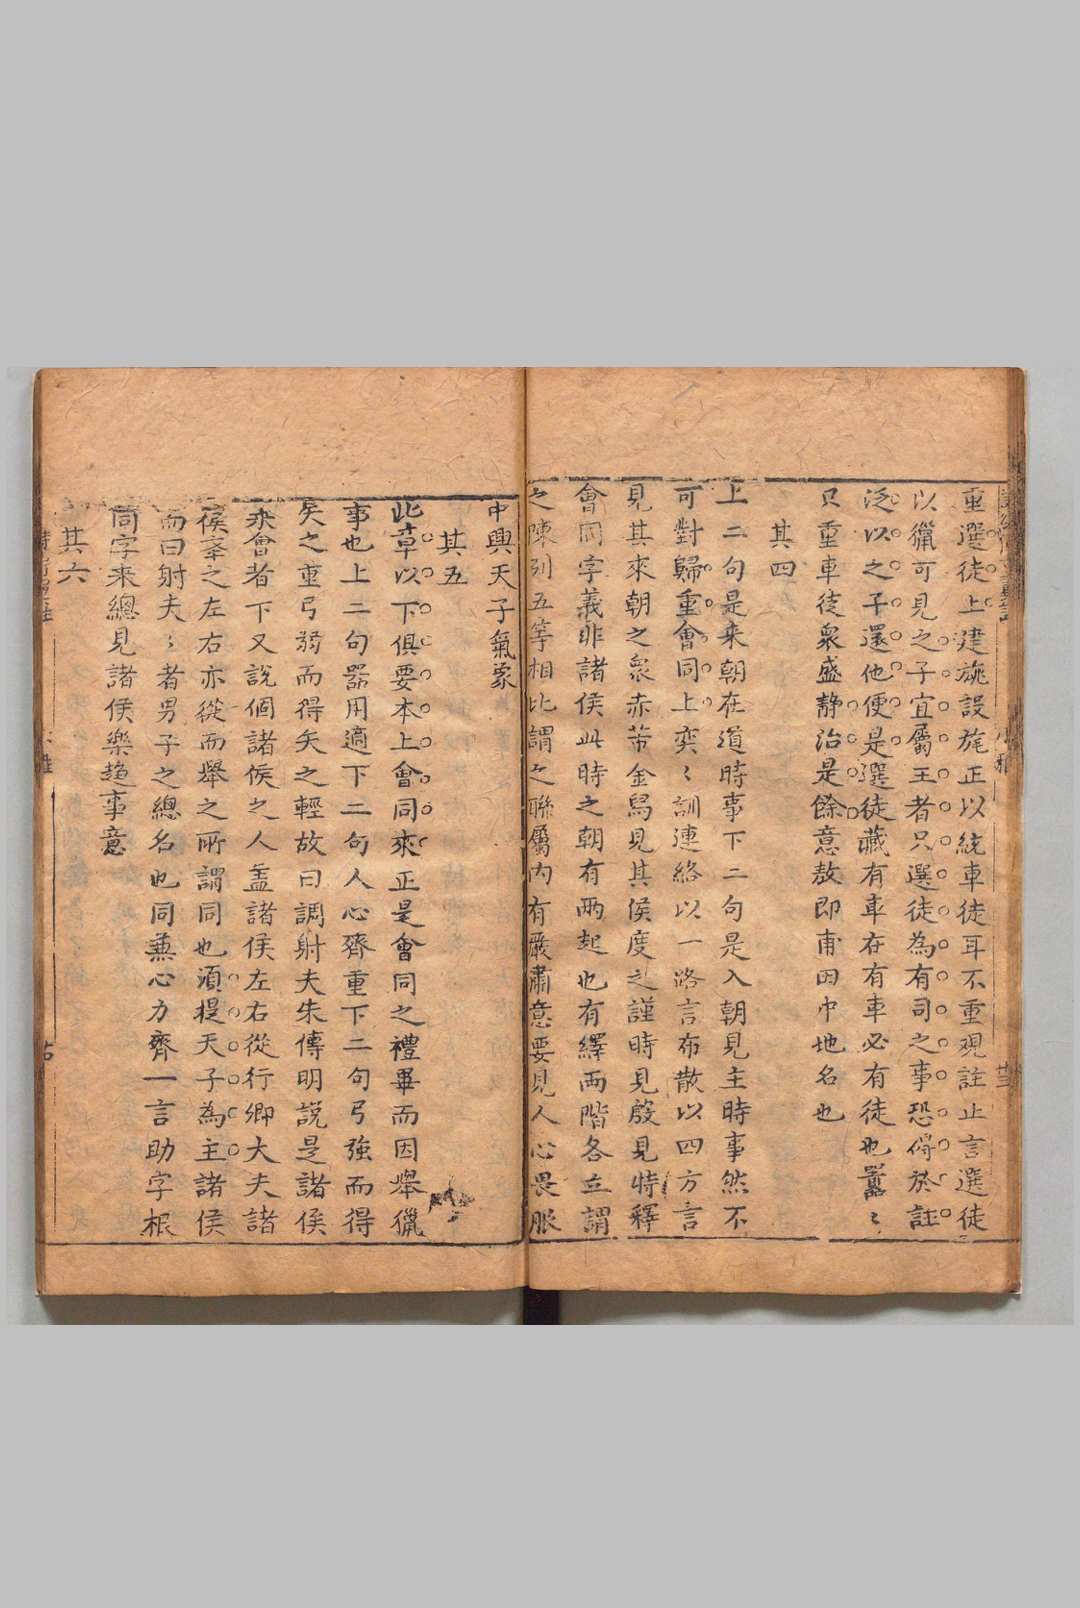 重選徒上建旐設旄正以統車徒耳不重現註止言選徒
以獵可見之子宜屬王者只選徒為有司之事恐碍於註
泛以之子還他便是選徒藏有車在有車必有徒也囂〻
只重車徒衆盛静治是餘意敖即甫田中地名也
其四
上二句是来朝在道時事下二句是入朝見主時事然不
可對歸重會同上奕〻訓連絡以一路言布散以四方言
見其來朝之衆赤芾金舄見其侯度之謹時見殷見特釋
會同字義非諸侯此時之朝有兩起也有繹兩階各立謂
之陳列五等相比謂之聯屬内有嚴肅意要見人心畏服
中興天子氣象
其五
此章以下俱要本上會同來正是會同之禮畢而因舉獵
事也上二句器用適下二句人心齊重下二句弓強而得
矢之重弓弱而得矢之輕故曰調射夫朱傳明說是諸侯
來會者下又說個諸侯之人盖諸侯左右從行卿大夫諸
侯率之左右亦從而舉之所謂同也須提天子為主諸侯
而曰射夫〻者男子之總名也同兼心力齊一言助字根
同字来總見諸侯樂趋事意
其六